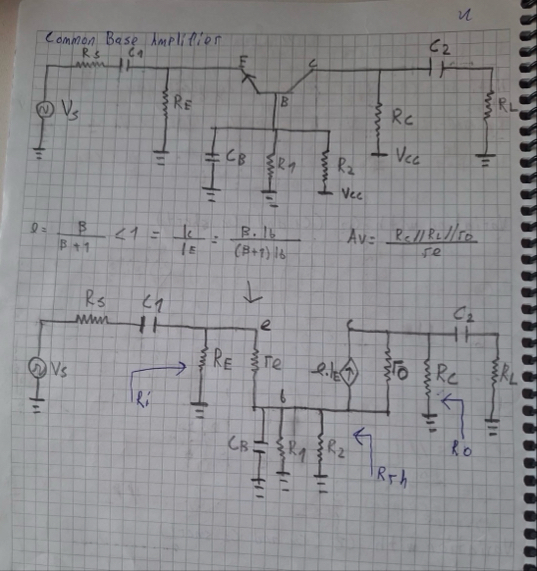 Common Base Amplifier
Rs C1 E C C2
Vs RE B RC RL
CB R1 R2 Vcc
Vcc
= B / B+1 < 1 = Ic / IE = B. Ib / (B+1) Ib Av = Rc//RL//ro / re
Rs C1 e c C2
Vs RE re .IE ro RC RL
Ri b
CB R1 R2 Ro
Rth